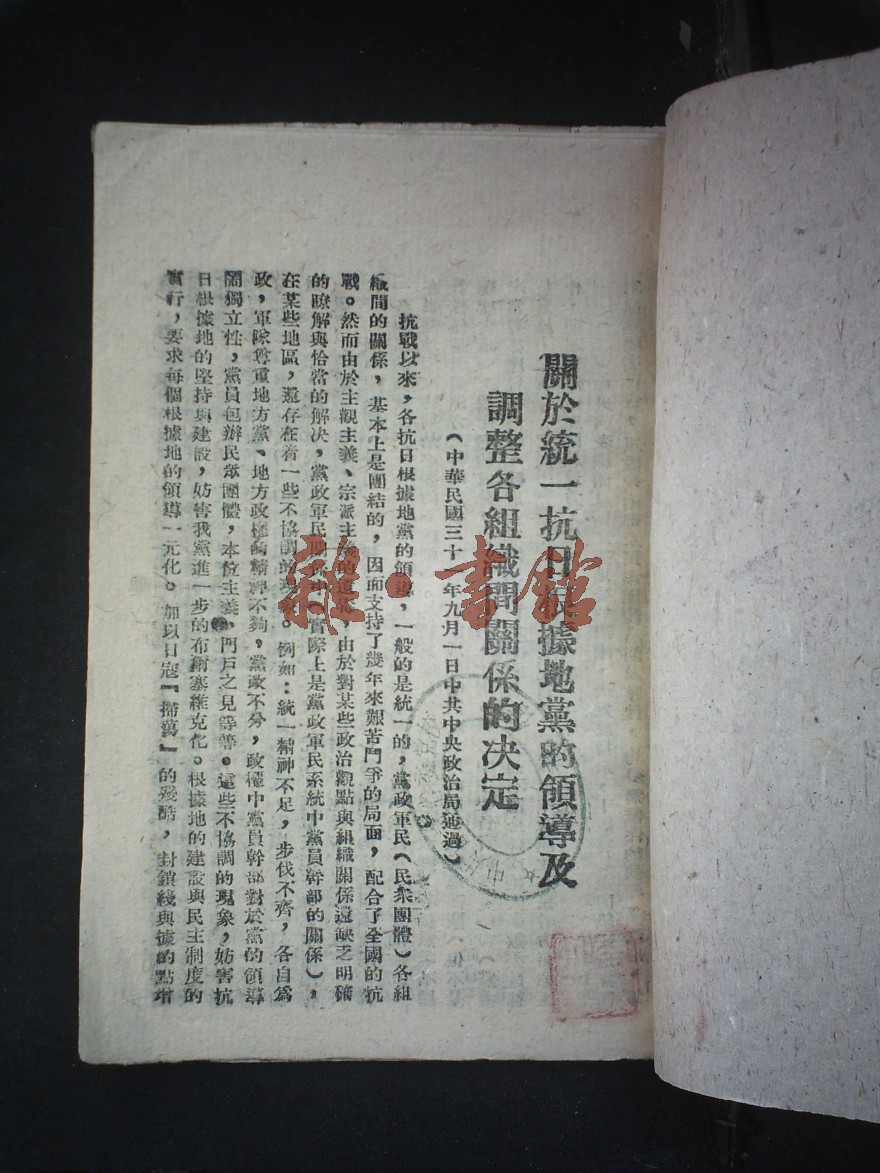 關於統一抗日根據地黨的領導及
調整各組織間關係的决定
（中華民國三十一年九月一日中共中央政治局通過）
抗戰以來，各抗日根據地黨的領導，一般的是統一的，黨政軍民（民衆團體）各組
織間的關係，基本上是團結的，因而支持了幾年來艱苦鬥爭的局面，配合了全國的抗
戰。然而由於主觀主義、宗派主義的遺，由於對某些政治觀點與組織關係還缺乏明確
的瞭解與恰當的解决，黨政軍民關係中（實際上是黨政軍民系統中黨員幹部的關係），
在某些地區，還存在着一些不協調的現象。例如：統一精神不足，步伐不齊，各自爲
政，軍隊尊重地方黨、地方政權的精神不夠，黨政不分，政權中黨員幹部對於黨的領導
鬧獨立性，黨員包辦民眾團體，本位主義，門戶之見等等。這些不協調的現象，妨害抗
日根據地的堅持與建設，妨害我黨進一步的布爾塞維克化。根據地的建設與民主制度的
實行，要求每個根據地的領導一元化。加以日寇『掃蕩』的殘酷，封鎖綫與據的點增
雜·書館